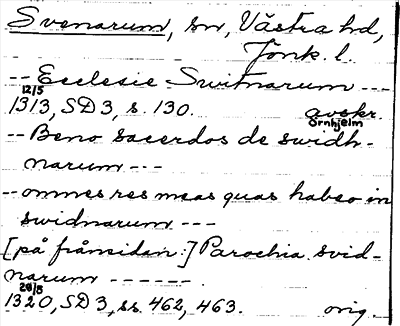 Svenarum, sn, Västra hd,
Jönk. l.
-- Ecclesie Switnarum ---
12/5
1313, SD 3, s. 130. avskr.
Örnhjelm
-- Beno sacerdos de swidh-
narum ---
-- ommes res meas quas habeo in
swidnarum ---
[på frånsidan:] Parochia svid-
narum ------
28/5
1320, SD 3, ss. 462, 463. orig.